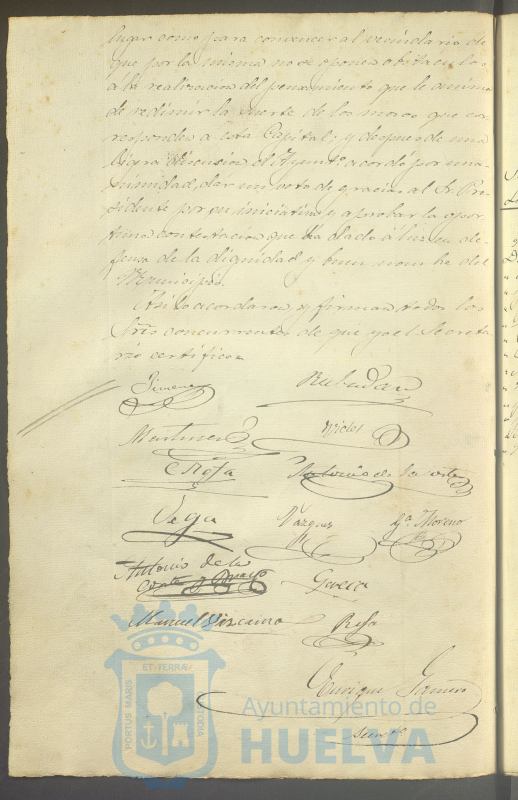 lugar como para convencer al vecindario de
que por la misma no se oponen obstaculos
á la realizacion del pensamiento que le anima
de redimir la suerte de los mozos que cor
responden a esta Capital; y despues de una
ligera discusion el Ayunt.º acordó por una-
nimidad, dar un voto de gracias al Sr. Pre-
sidente por su iniciativa y aprobar la opor
tuna contestacion que ha dado á luz en de-
fensa de la dignidad y buen nombre del
Municipio.
Asi lo acordaron y firman todos los
Sres concurrentes de que yo el Secreta
rio certifico=
Jimenez
Martinez
Rosa
Antonio de la Corte
Vega
Vazquez
Gª Moreno
Antonio de la
Corte y
Garcia
Manuel Vizcaino
Rosa
Enrique
Secret.º
PORTUS MARIS ET TERRÆ CUSTODIA
Ayuntamiento de
HUELVA